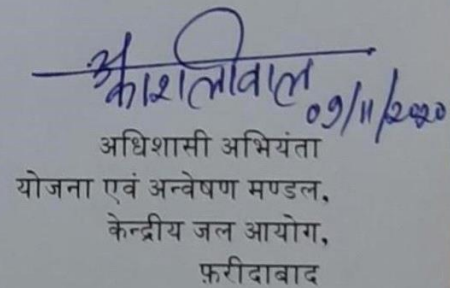 अकाशलीवाल
09/11/2020
अधिशासी अभियंता
योजना एवं अन्वेषण मण्डल,
केन्द्रीय जल आयोग,
फ़रीदाबाद